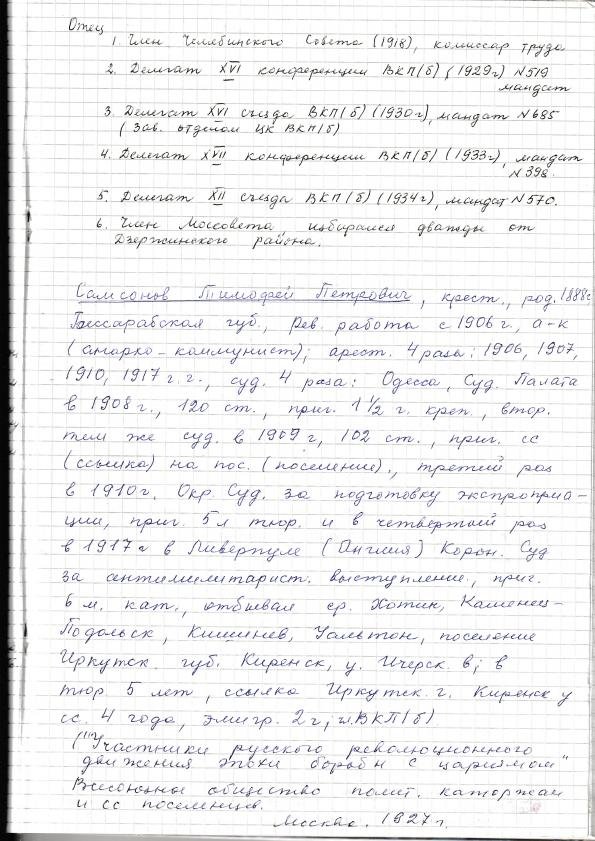 Отец
1. Член Челябинского Совета (1918), комиссар труда
2. Делегат XVI конференции ВКП(б) (1929г) N519
мандат
3. Делегат XVI съезда ВКП(б) (1930г), мандат N685
(Зав. отделом ЦК ВКП(б)
4. Делегат XVII конференции ВКП(б) (1933г), мандат
N398.
5. Делегат XII съезда ВКП(б) (1934г), мандат N570.
6. Член Моссовета, избирался дважды от
Дзержинского района.
Самсонов Тимофей Петрович, крест., род. 1888г
Бессарабская губ., Рев. работа с 1906г., а-к
(анархо-коммунист); арест. 4 раза: 1906, 1907,
1910, 1917 г.г., суд. 4 раза: Одесса, Суд. Палата
в 1908г., 120 ст., приг. 1 1/2 г. креп., втор.
тем же суд. в 1909г, 102 ст., приг. сс
(ссылка) на пос. (поселение)., третий раз
в 1910г. Окр. Суд. за подготовку экспроприа-
ции, приг. 5л тюр. и в четвертый раз
в 1917г в Ливерпуле (Англия) Корон. Суд
за антимилитарист. выступление, приг.
6 м. кат., отбывал ср. Хотин, Каменец-
Подольск, Кишинев, Уальтон, поселение
Иркутск. губ. Киренск, у. Ичерск. в; в
тюр 5 лет, ссылка Иркутск. г. Киренск у
сс. 4 года, эмигр. 2г; чл. ВКП(б)
("Участники русского революционного
движения эпохи борьбы с царизмом"
Всесоюзное общество полит. каторжан
и сс поселенцев.
Москва. 1927г.